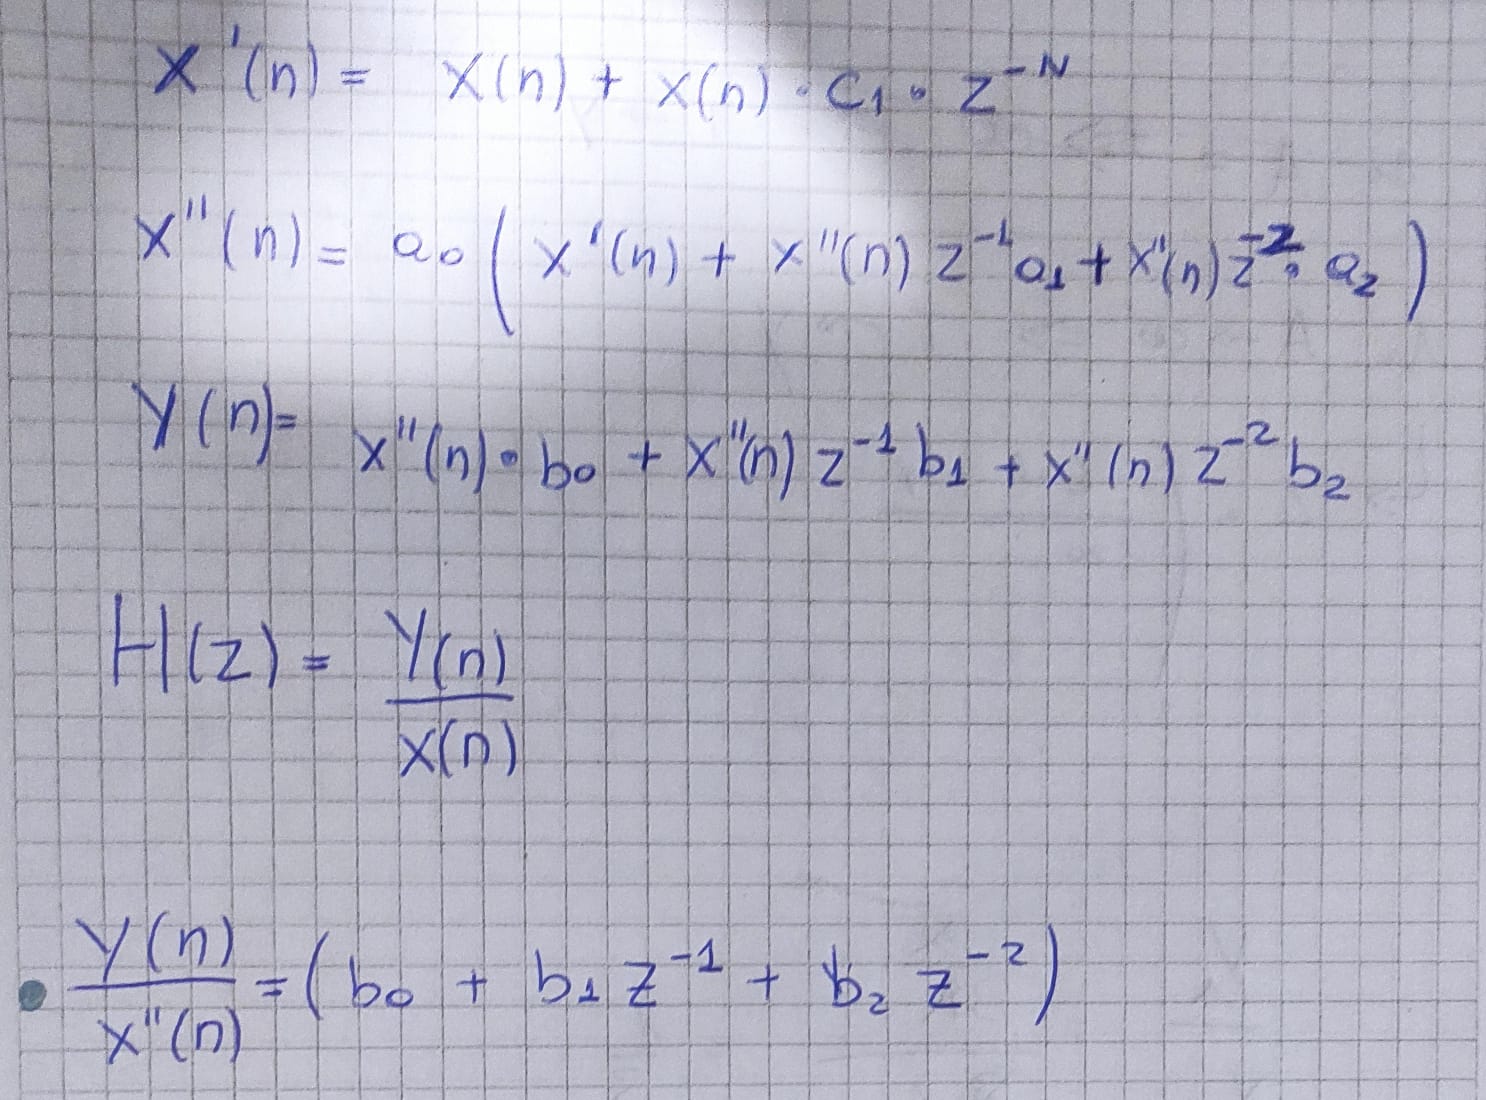 x'(n) = x(n) + x(n) · c₁ · z⁻ᴺ
x''(n) = a₀ ( x'(n) + x''(n) z⁻¹ a₁ + x''(n) z⁻² · a₂ )
y(n) = x''(n) · b₀ + x''(n) z⁻¹ b₁ + x''(n) z⁻² b₂
H(z) = y(n)
x(n)
y(n) = ( b₀ + b₁ z⁻¹ + b₂ z⁻² )
x''(n)